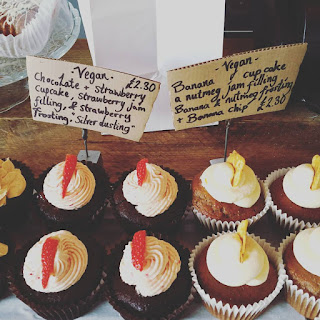 - Vegan -
Chocolate + Strawberry £2.30
Cupcake, strawberry jam
filling, & strawberry
frosting. "Silver dusting"
- Vegan -
Banana cupcake
a nutmeg jam filling
Banana & nutmeg frosting
+ Banana chip £2.30